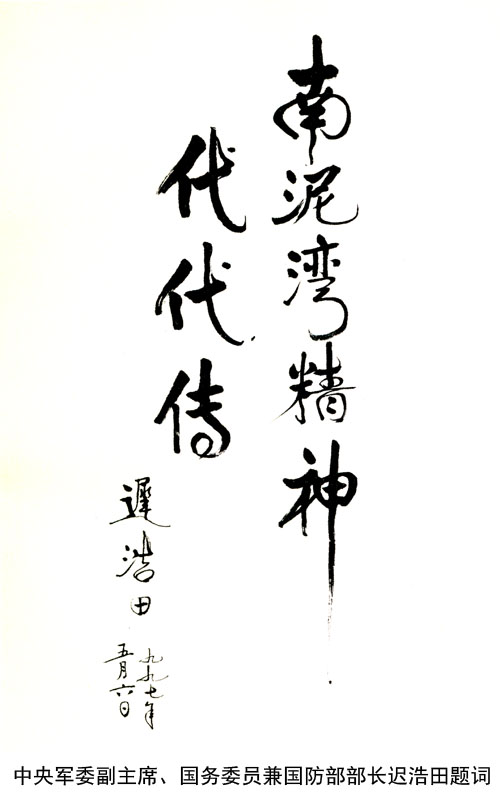 南泥湾精神
代代传
遲浩田
九九七年
五月六日
中央军委副主席、国务委员兼国防部部长迟浩田题词